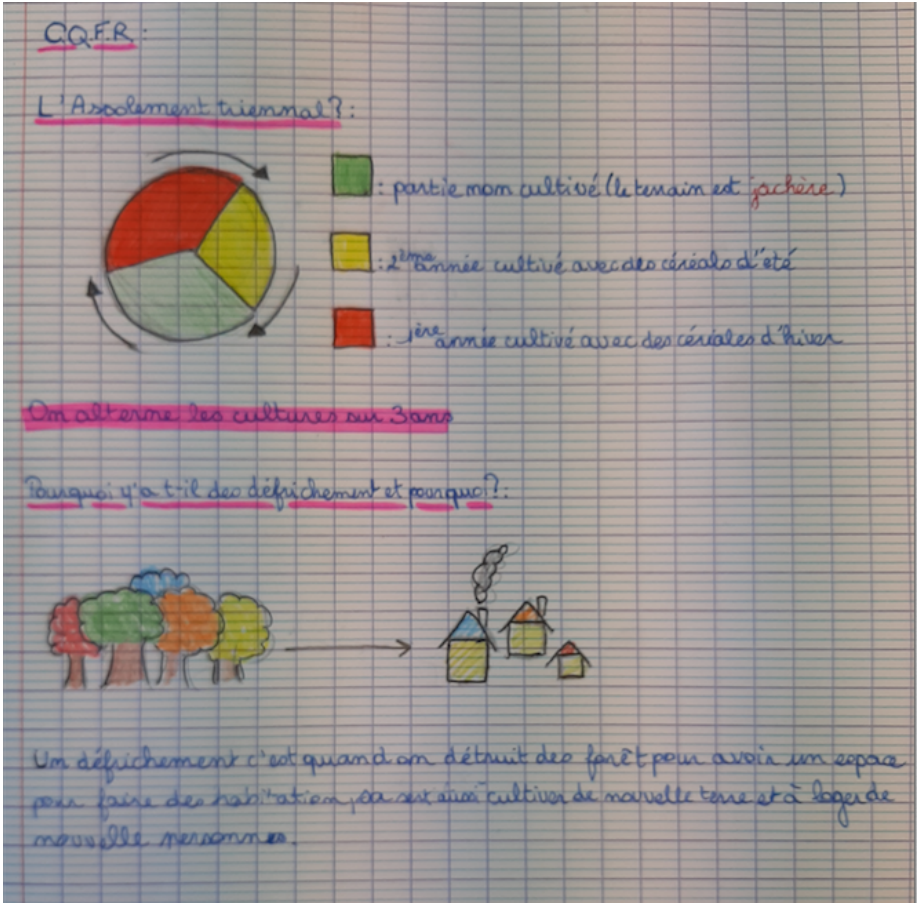 C.Q.F.R :
L'Assolement triennal ? :
: partie non cultivé (le terrain est jachère)
: 2ème année cultivé avec des céréals d'été
: 1ère année cultivé avec des céréales d'hiver
On alterne les cultures sur 3 ans
Pourquoi y'a t-il des défrichement et pourquoi ? :
Un défrichement c'est quand on détruit des forêt pour avoir un espace
pour faire des habitation, sa sert aussi cultiver de nouvelle terre et à loger de
nouvelle personnes.